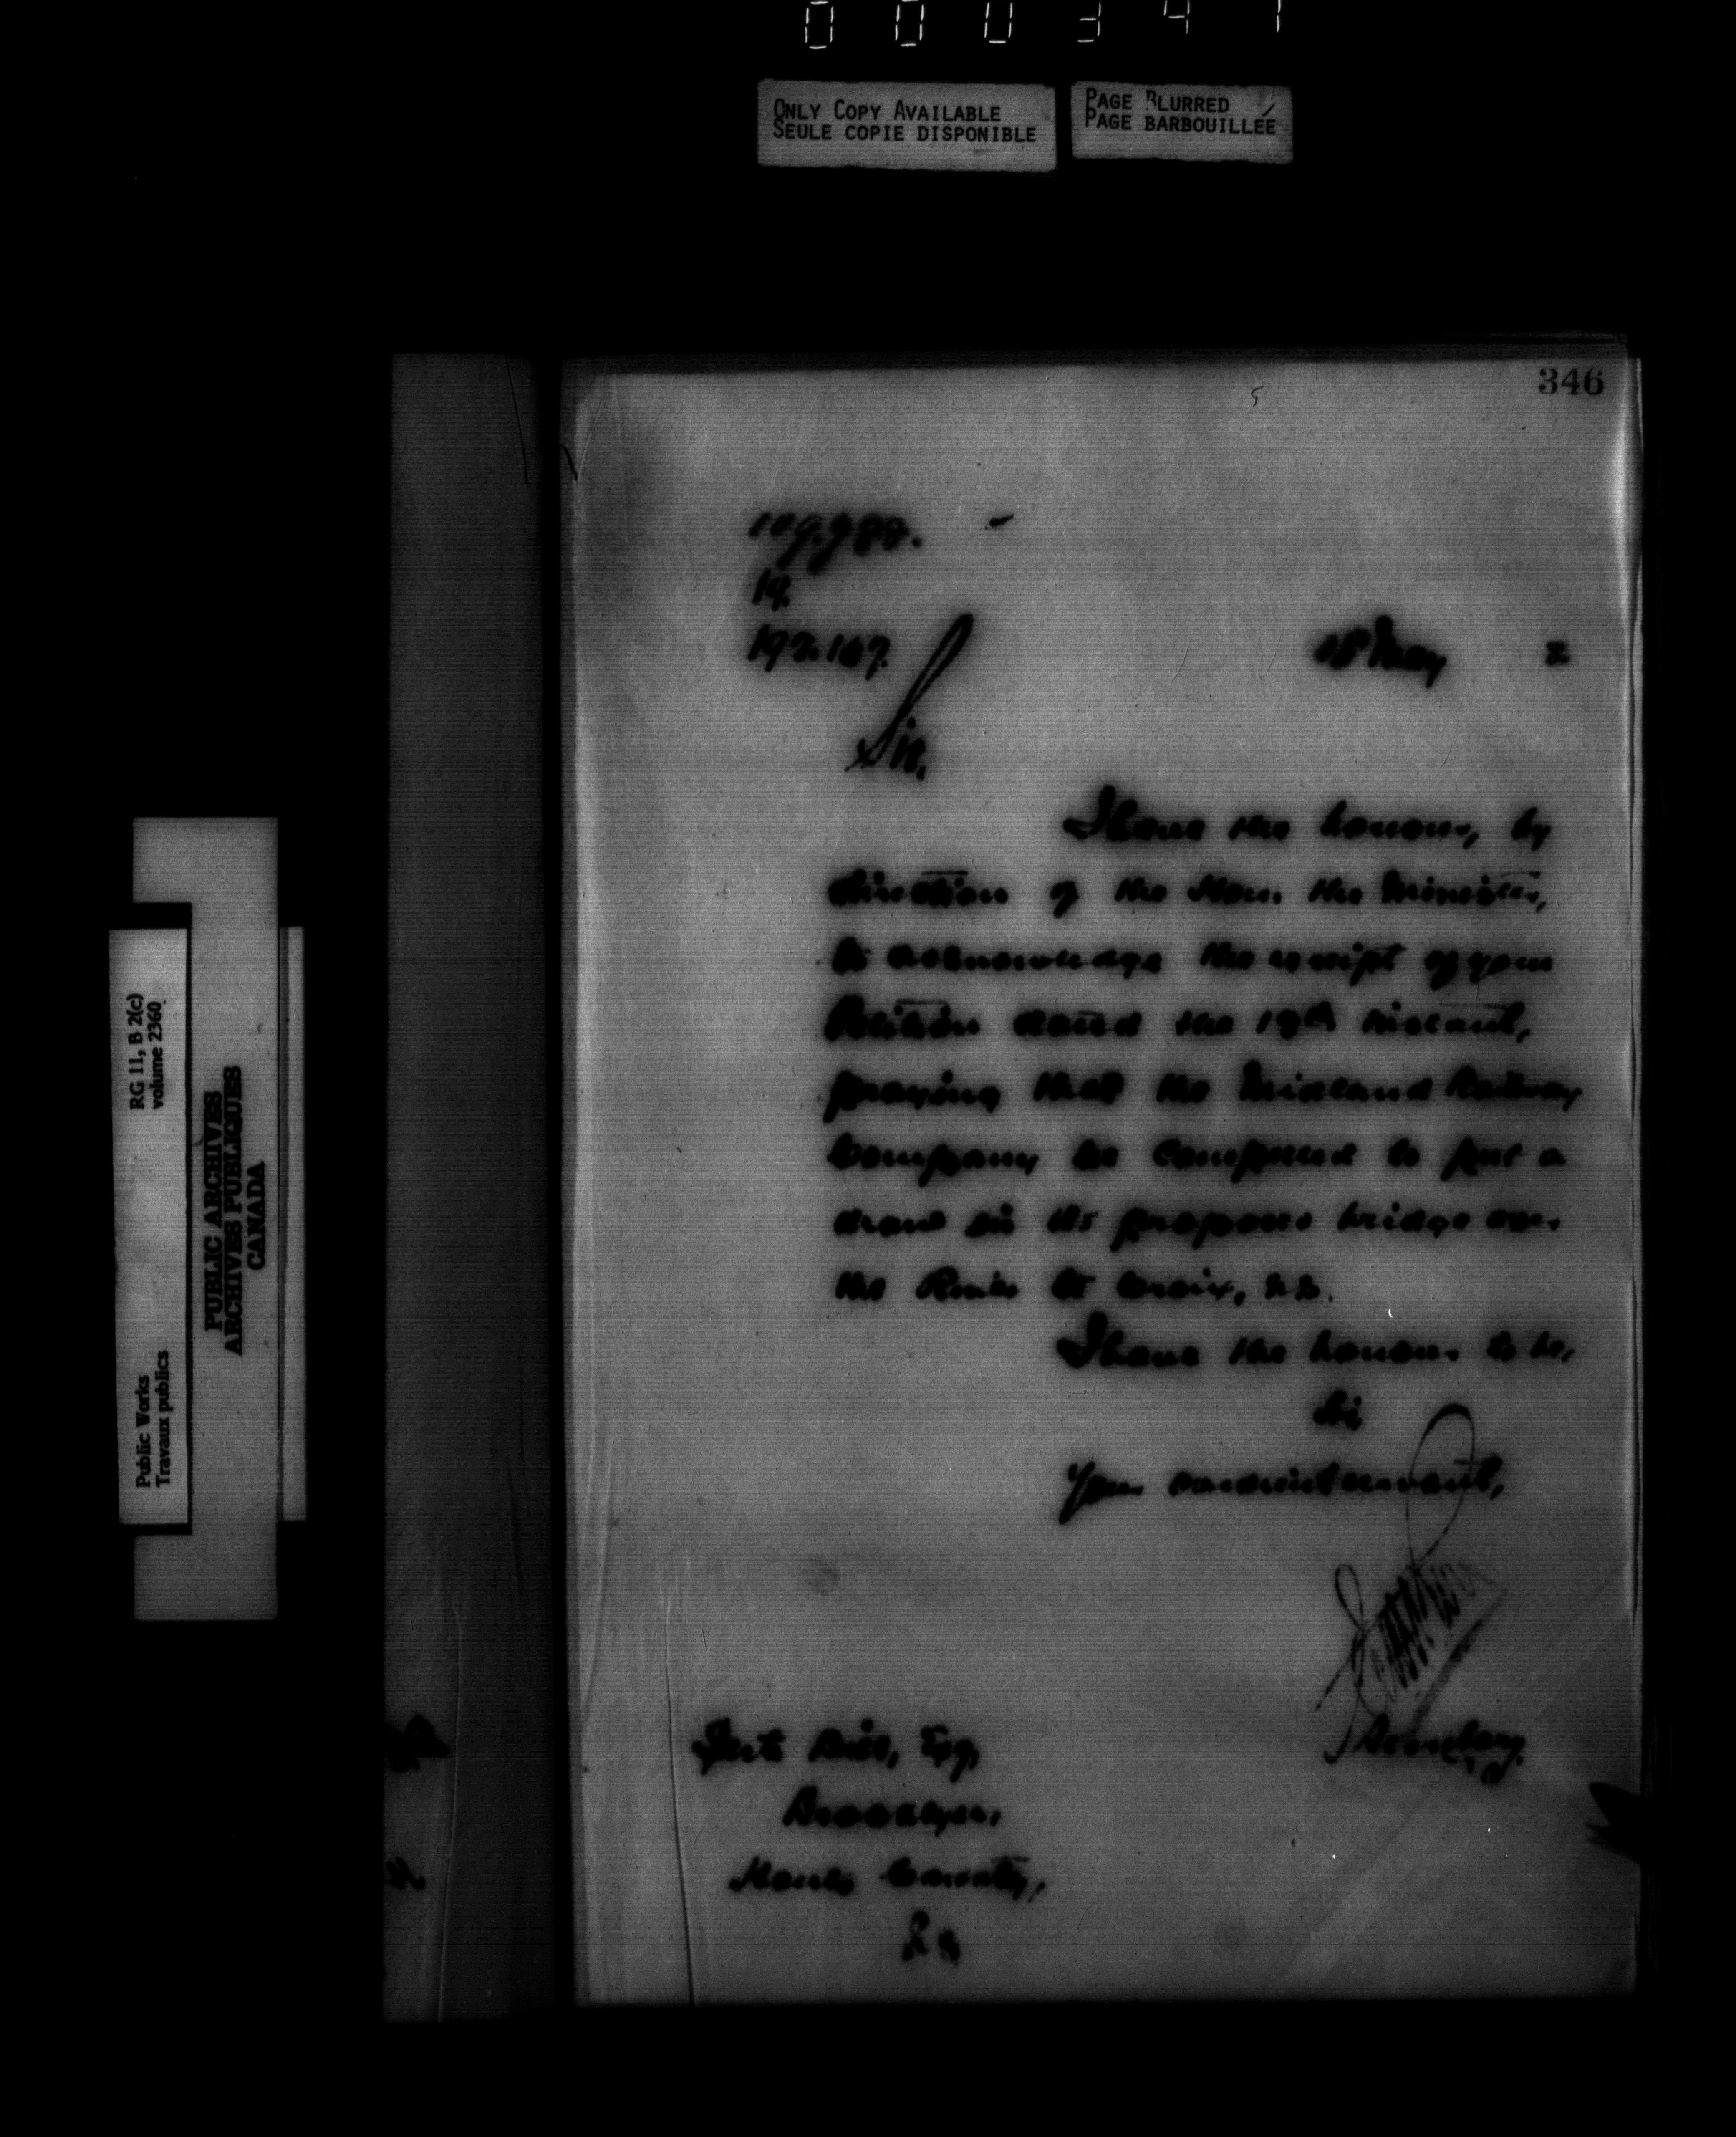 000341
ONLY COPY AVAILABLE
SEULE COPIE DISPONIBLE
PAGE BLURRED
PAGE BARBOUILLÉE
346
19.
18 May 2
Sir,
I have the honour, by
direction of the Hon. the Minister,
to acknowledge the receipt of your
Petition dated the 19th instant,
praying that the Midland Railway
Company be compelled to put a
draw in its proposed bridge over
the River St Croix, N.S.
I have the honour to be,
Sir,
Your obedient servant,
Secretary.
Esq,
Brooklyn,
Hants County,
N.S.
RG 11, B 2(c)
volume 2360
Public Works
Travaux publics
PUBLIC ARCHIVES
ARCHIVES PUBLIQUES
CANADA